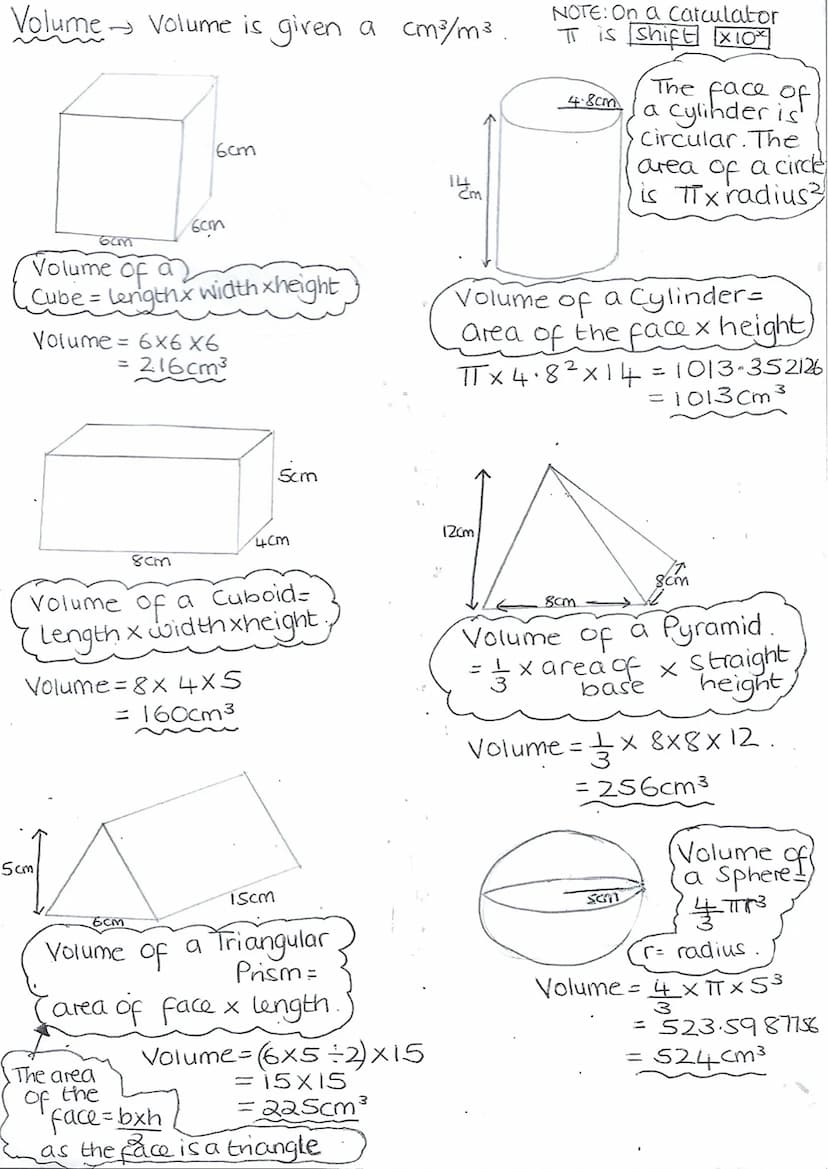 Volume → Volume is given a cm³/m³.
NOTE: On a Calculator
π is Shift ×10ˣ
6cm
6cm
6cm
Volume of a
Cube = length x width x height
Volume = 6 x 6 x 6
= 216cm³
4.8cm
14
cm
The face of
a cylinder is
circular. The
area of a circle
is π x radius²
Volume of a Cylinder =
area of the face x height
π x 4.8² x 14 = 1013.352126
= 1013cm³
5cm
4cm
8cm
Volume of a Cuboid =
Length x width x height.
Volume = 8 x 4 x 5
= 160cm³
12cm
8cm
8cm
Volume of a Pyramid.
= 1/3 x area of base x straight height
Volume = 1/3 x 8x8x12.
= 256cm³
5cm
6cm
15cm
Volume of a Triangular
Prism =
area of face x length.
Volume = (6x5÷2) x 15
= 15 x 15
= 225cm³
The area
of the
face = bxh/2
as the face is a triangle
5cm
Volume of
a Sphere =
4/3 πr³
r = radius.
Volume = 4/3 x π x 5³
= 523.5987756
= 524cm³